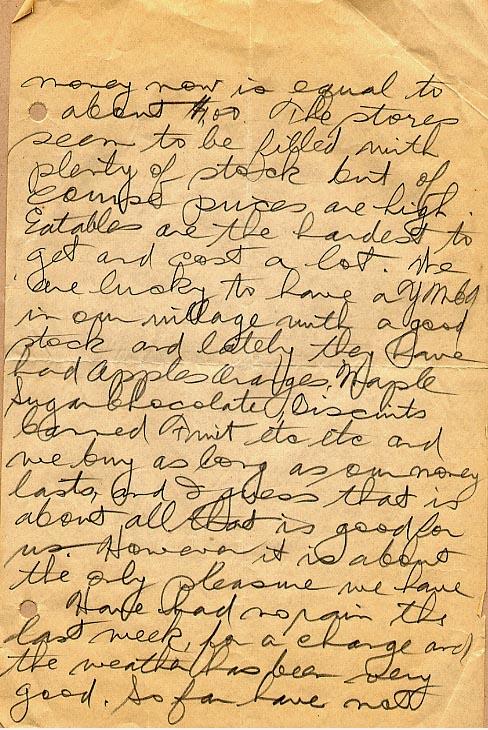 money now is equal to
about $1.00. The stores
seem to be filled with
plenty of stock but of
course prices are high.
Eatables are the hardest to
get and cost a lot. We
are lucky to have a YMCA
in our village with a good
stock and lately they have
had Apples Oranges, Maple
Sugar Chocolate, Biscuits
Canned Fruit etc etc and
we buy as long as our money
lasts, and I guess that is
about all that is good for
us. However it is about
the only pleasure we have
Have had no pain the
last week, for a change and
the weather has been very
good. So far have not